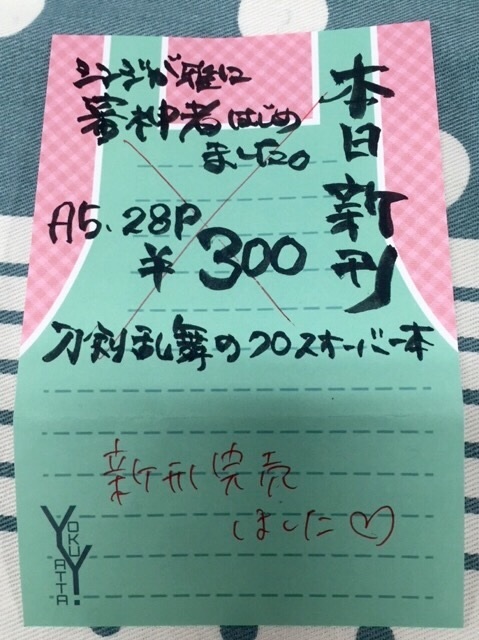 本日新刊
シンジが雅に
審神者はじめ
ました。
A5. 28P
¥300
刀剣乱舞のクロスオーバー本
新刊完売
しました♡
YOKU
YATTA!